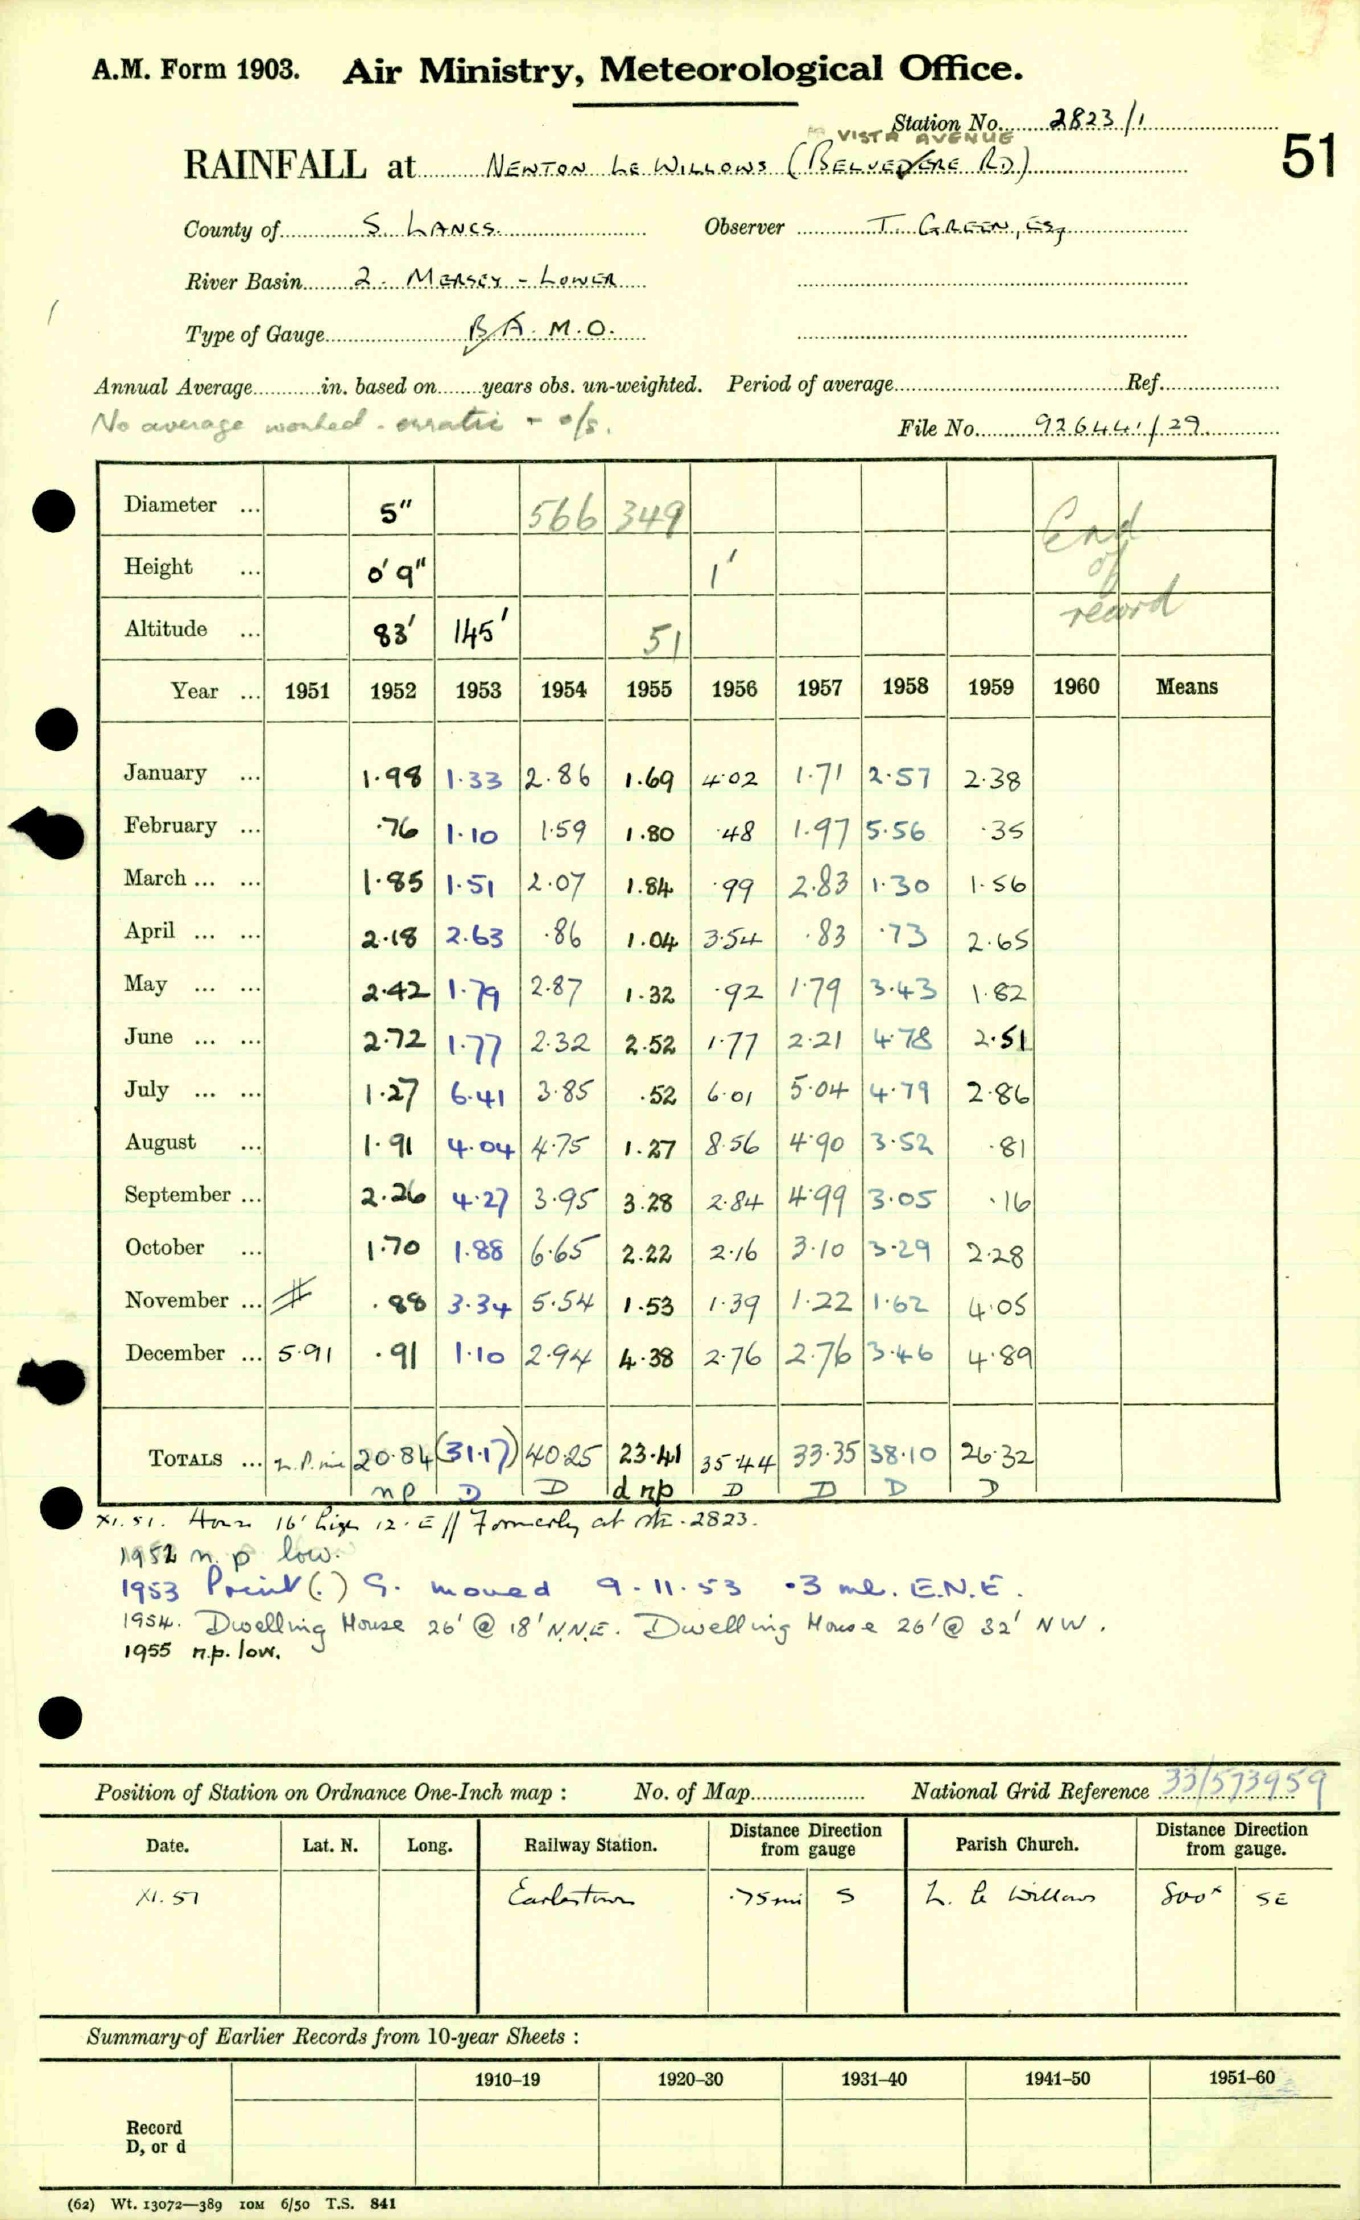 A.M. Form 1903. Air Ministry, Meteorological Office.
Station No. 2823/1
VISTA AVENUE
RAINFALL at NEWTON LE WILLOWS (BELVEDERE RD)
51
County of S. LANCS. Observer T. GREEN, ESq
River Basin 2. MERSEY - LOWER
Type of Gauge B A. M.O.
Annual Average in. based on years obs. un-weighted. Period of average Ref.
No average worked - erratic - o/s.
File No. 926441/29
Diameter ... 5" 566 349
Height ... 0' 9" 1'
Altitude ... 83' 145' 51
End of record
Year ... 1951 1952 1953 1954 1955 1956 1957 1958 1959 1960 Means
January ... 1.98 1.33 2.86 1.69 4.02 1.71 2.57 2.38
February ... .76 1.10 1.59 1.80 .48 1.97 5.56 .35
March ... ... 1.85 1.51 2.07 1.84 .99 2.83 1.30 1.56
April ... ... 2.18 2.63 .86 1.04 3.54 .83 .73 2.65
May ... ... 2.42 1.79 2.87 1.32 .92 1.79 3.43 1.82
June ... ... 2.72 1.77 2.32 2.52 1.77 2.21 4.78 2.51
July ... ... 1.27 6.41 3.85 .52 6.01 5.04 4.79 2.86
August ... 1.91 4.04 4.75 1.27 8.56 4.90 3.52 .81
September ... 2.26 4.27 3.95 3.28 2.84 4.99 3.05 .16
October ... 1.70 1.88 6.65 2.22 2.16 3.10 3.29 2.28
November ... .88 3.34 5.54 1.53 1.39 1.22 1.62 4.05
December ... 5.91 .91 1.10 2.94 4.38 2.76 2.76 3.46 4.89
TOTALS ... 20.84 (31.17) 40.25 23.41 35.44 33.35 38.10 26.32
np D D d np D D D D
XI.51. House 16' high 12. E // Formerly at stn. 2823.
1952 n.p low.
1953 Print (.) G. moved 9.11.53 .3 ml. E.N.E.
1954. Dwelling House 26' @ 18' N.N.E. Dwelling House 26' @ 32' NW.
1955 n.p. low.
Position of Station on Ordnance One-Inch map : No. of Map National Grid Reference 33/573959
Date. Lat. N. Long. Railway Station. Distance Direction from gauge Parish Church. Distance Direction from gauge.
XI.51 Earlestown .75mi S N. le Willows 800x SE
Summary of Earlier Records from 10-year Sheets :
1910–19 1920–30 1931–40 1941–50 1951–60
Record
D, or d
(62) Wt. 13072—389 10M 6/50 T.S. 841